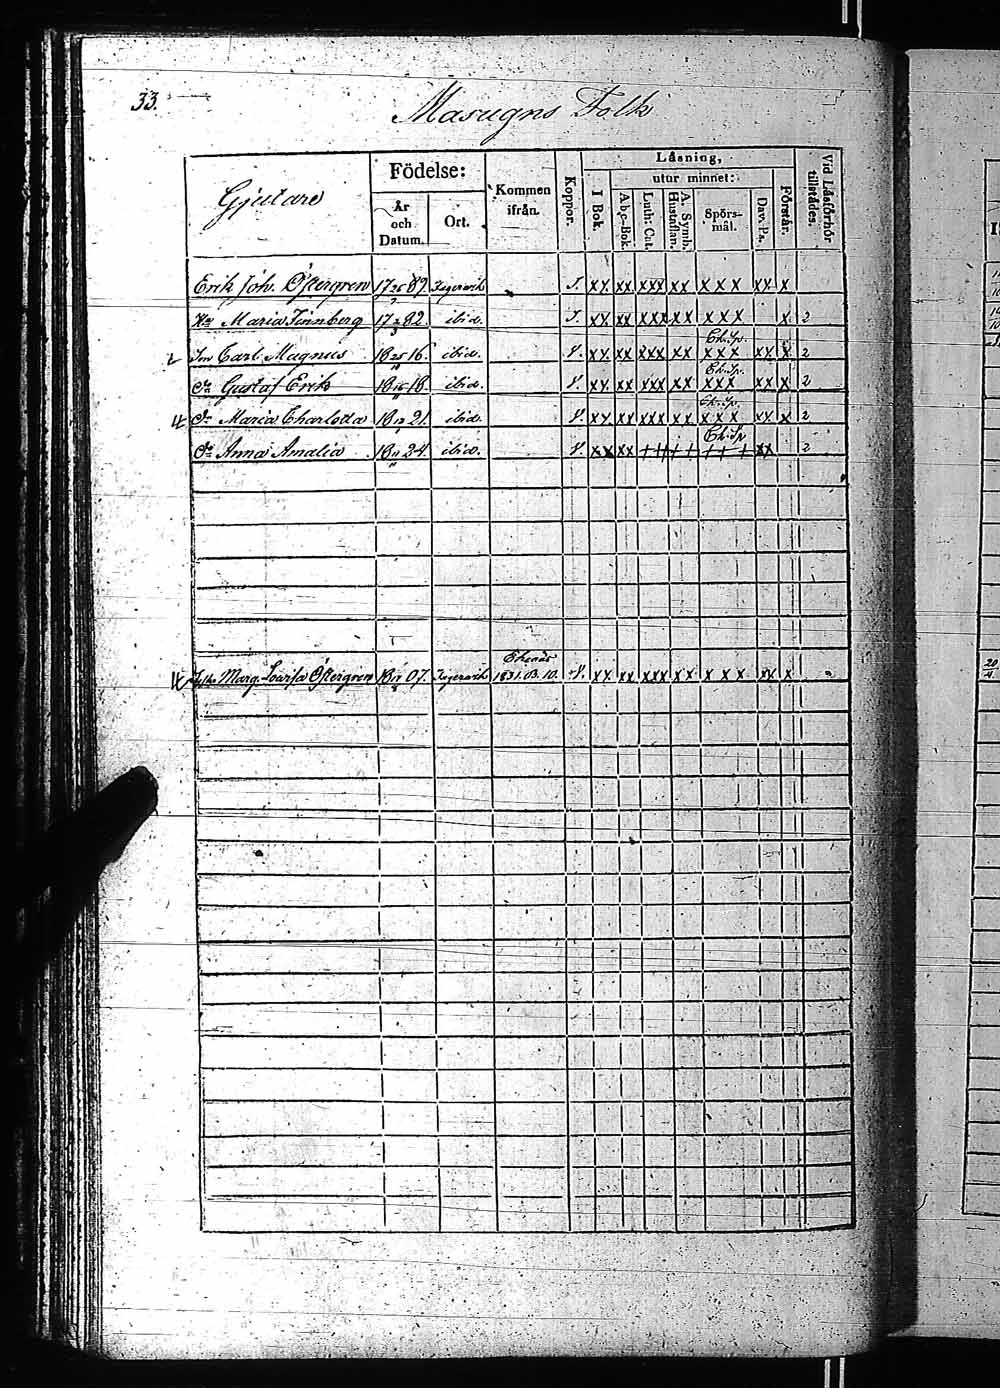 33.
Masugns Folk
Gjutare
Födelse:
År och Datum.
Ort.
Kommen ifrån.
Koppor.
Läsning,
I Bok.
utur minnet:
Abc-Bok.
Luth. Cat.
A. Symb. Hustaflan.
Spörsmål.
Dav. Ps.
Förstår.
Vid Läsförhör tillstädes.
Erik Joh. Östergren 17 26 89. Fagervik J. xx xx xxx xx xxx xx x
Hu Maria Finnberg 17 2/3 82. ibid. J. xx xx xxx xx xxx x 2
Son Carl Magnus 18 25 16. ibid. V. xx xx xxx xx Ch. Sp. xxx xx x 2
Dn Gustaf Erik 18 16 18. ibid. V. xx xx xxx xx Ch. Sp. xxx xx x 2
Dr Maria Charlotta 18 12 21. ibid. V. xx xx xxx xx Ch. Sp. xxx xx x 2
Dr Anna Amalia 18 11 24. ibid. V. xx xx +++ ++ Ch. Sp +++ xx 2
Marg. Lovisa Östergren 18 07. Fagervik Ekenäs 1831.03.10. V. xx xx xxx xx xxx xx x